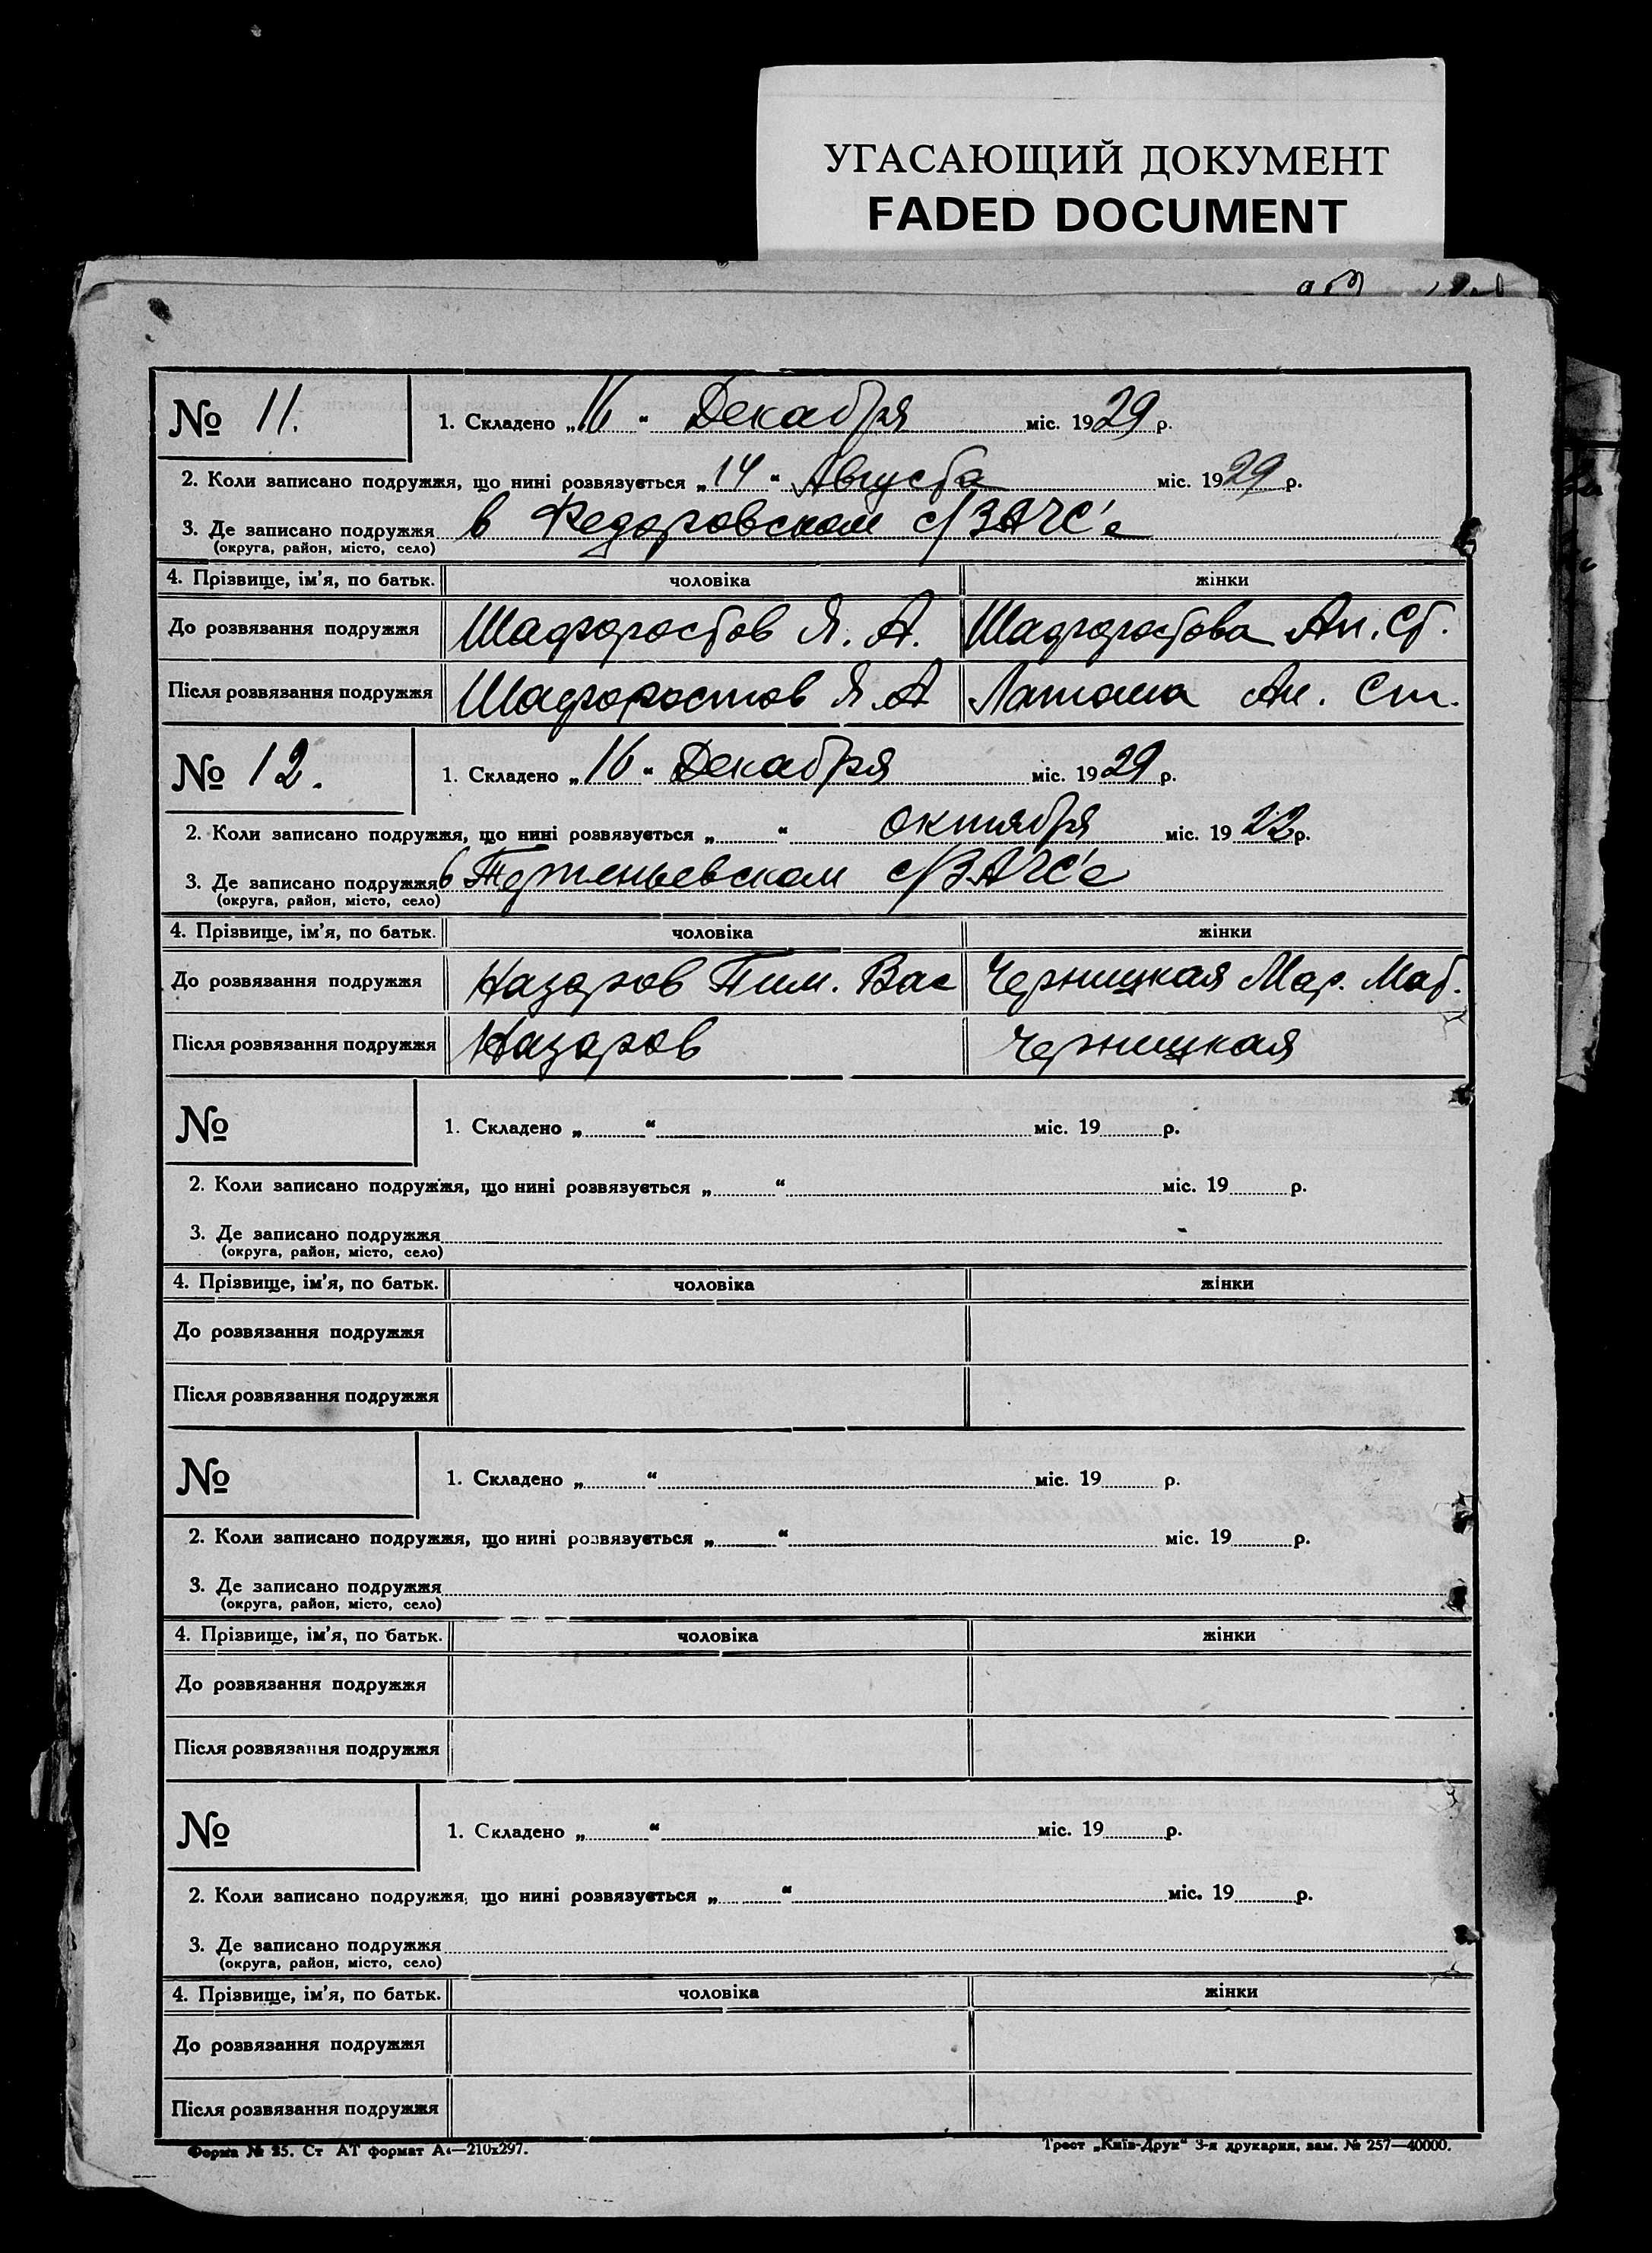 УГАСАЮЩИЙ ДОКУМЕНТ
FADED DOCUMENT
№ 11. 1. Складено „16“ Декабря міс. 1929 р.
2. Коли записано подружжя, що нині розвязується „14“ Августа міс. 1929 р.
3. Де записано подружжя в Федоровском с/ЗАГС'е
(округа, район, місто, село)
4. Прізвище, ім’я, по батьк. чоловіка жінки
До розвязання подружжя Шафоростов Я. А. Шафоростова Ан. Ст.
Після розвязання подружжя Шафоростов Я. А Латоша Ан. Ст.
№ 12. 1. Складено „16“ Декабря міс. 1929 р.
2. Коли записано подружжя, що нині розвязується „ “ октября міс. 1922 р.
3. Де записано подружжя в с/ЗАГС'е
(округа, район, місто, село)
4. Прізвище, ім’я, по батьк. чоловіка жінки
До розвязання подружжя Назаров Тим. Вас Черницкая Мар. Мат.
Після розвязання подружжя Назаров Черницкая
№ 1. Складено „ “ міс. 19 р.
2. Коли записано подружжя, що нині розвязується „ “ міс. 19 р.
3. Де записано подружжя
(округа, район, місто, село)
4. Прізвище, ім’я, по батьк. чоловіка жінки
До розвязання подружжя
Після розвязання подружжя
№ 1. Складено „ “ міс. 19 р.
2. Коли записано подружжя, що нині розвязується „ “ міс. 19 р.
3. Де записано подружжя
(округа, район, місто, село)
4. Прізвище, ім’я, по батьк. чоловіка жінки
До розвязання подружжя
Після розвязання подружжя
№ 1. Складено „ “ міс. 19 р.
2. Коли записано подружжя, що нині розвязується „ “ міс. 19 р.
3. Де записано подружжя
(округа, район, місто, село)
4. Прізвище, ім’я, по батьк. чоловіка жінки
До розвязання подружжя
Після розвязання подружжя
Форма № 25. Ст АТ формат А4—210x297. Трест „Київ-Друк“ 3-я друкарня, зам. № 257—40000.